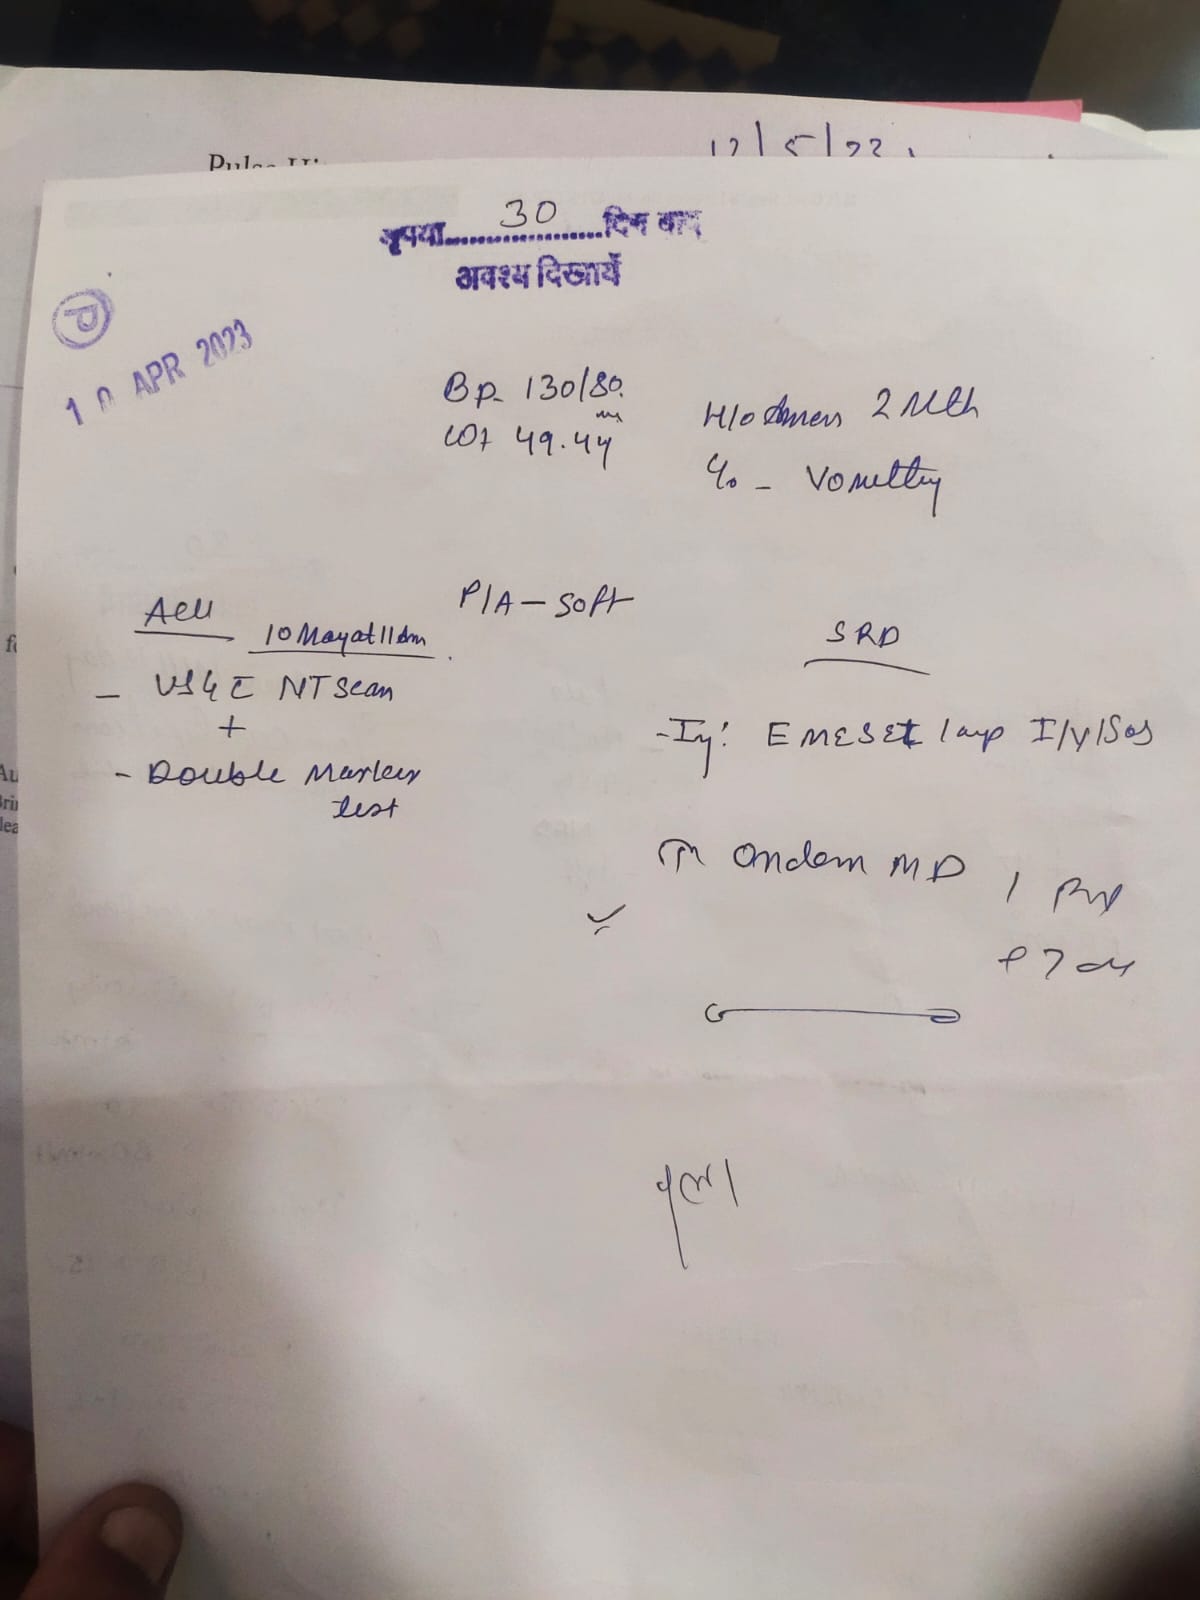 12/5/22
कृपया 30 दिन बाद
अवश्य दिखायें
10 APR 2023
Bp- 130/80
wt 49.44
H/o Amen 2 Mth
c/o - Vomitting
P/A - Soft
Adv
10 May at 11 Am
- USG c NT Scan
+
- Double Marker
test
SRD
- Inj: EMESET 1 amp I/v/Sos
Ondem MD